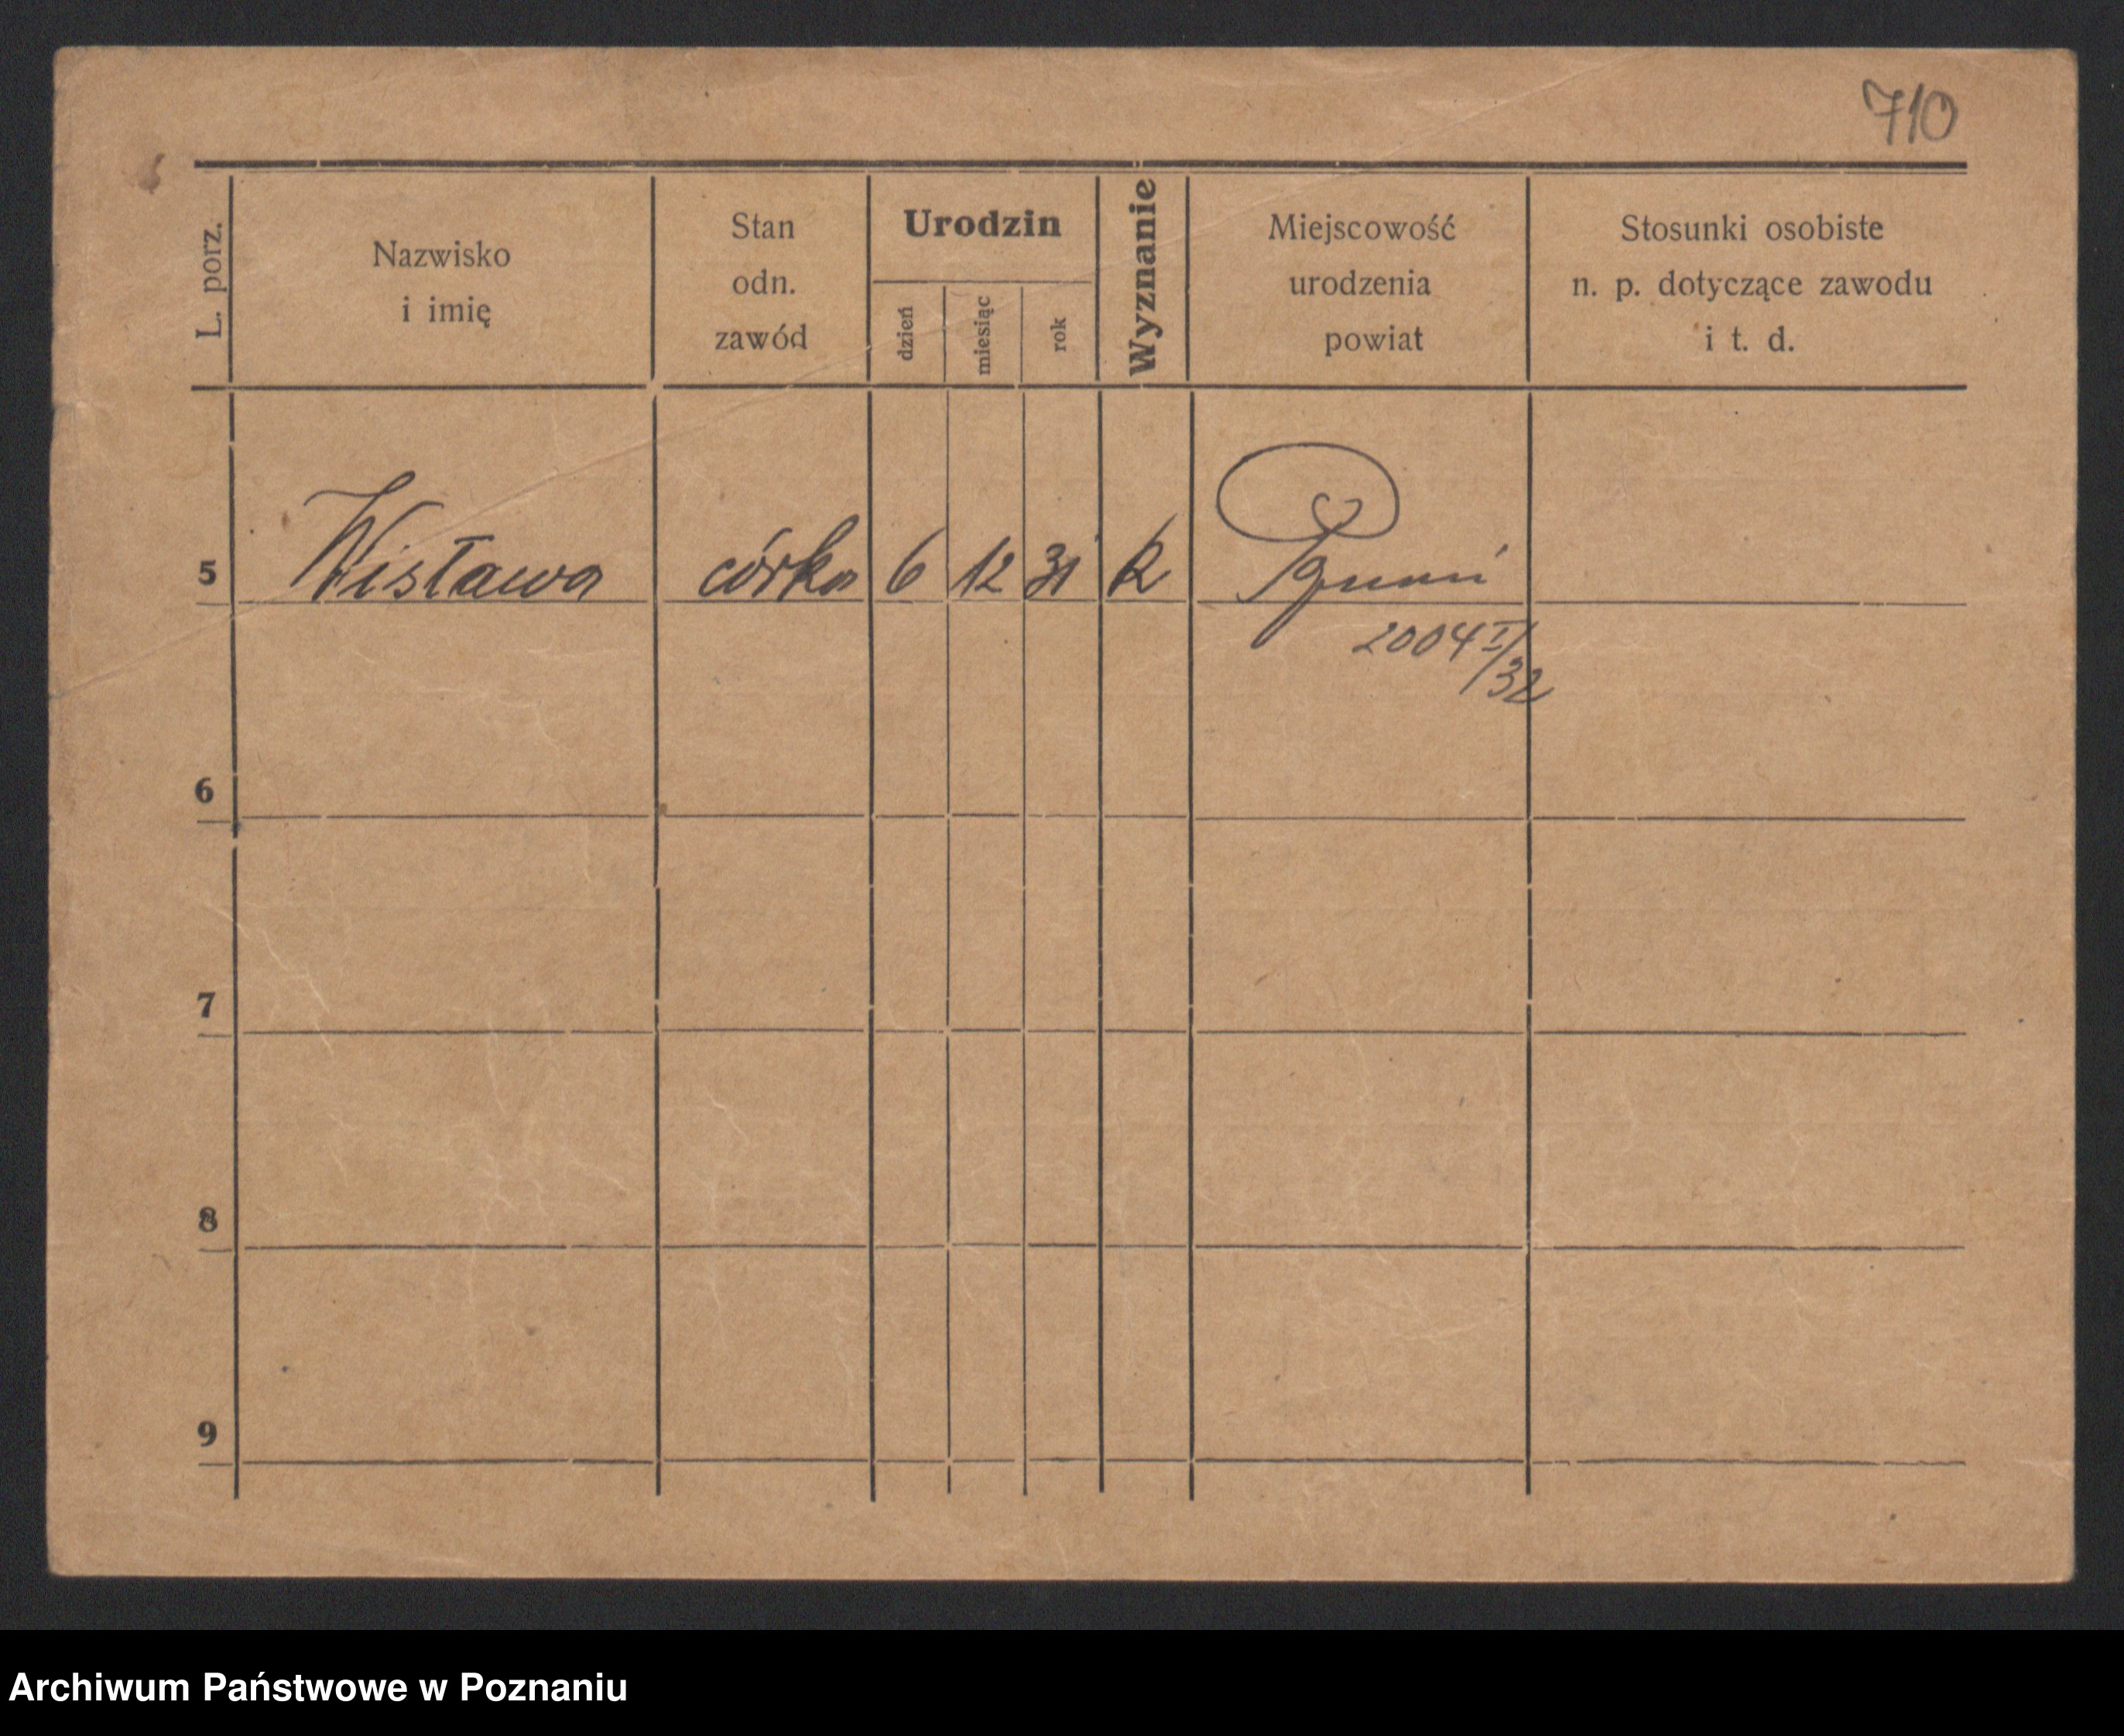 710
L. porz.
Nazwisko
i imię
Stan
odn.
zawód
Urodzin
dzień
miesiąc
rok
Wyznanie
Miejscowość
urodzenia
powiat
Stosunki osobiste
n. p. dotyczące zawodu
i t. d.
5 Wisława córka 6 12 31
2004 I/32
6
7
8
9
Archiwum Państwowe w Poznaniu